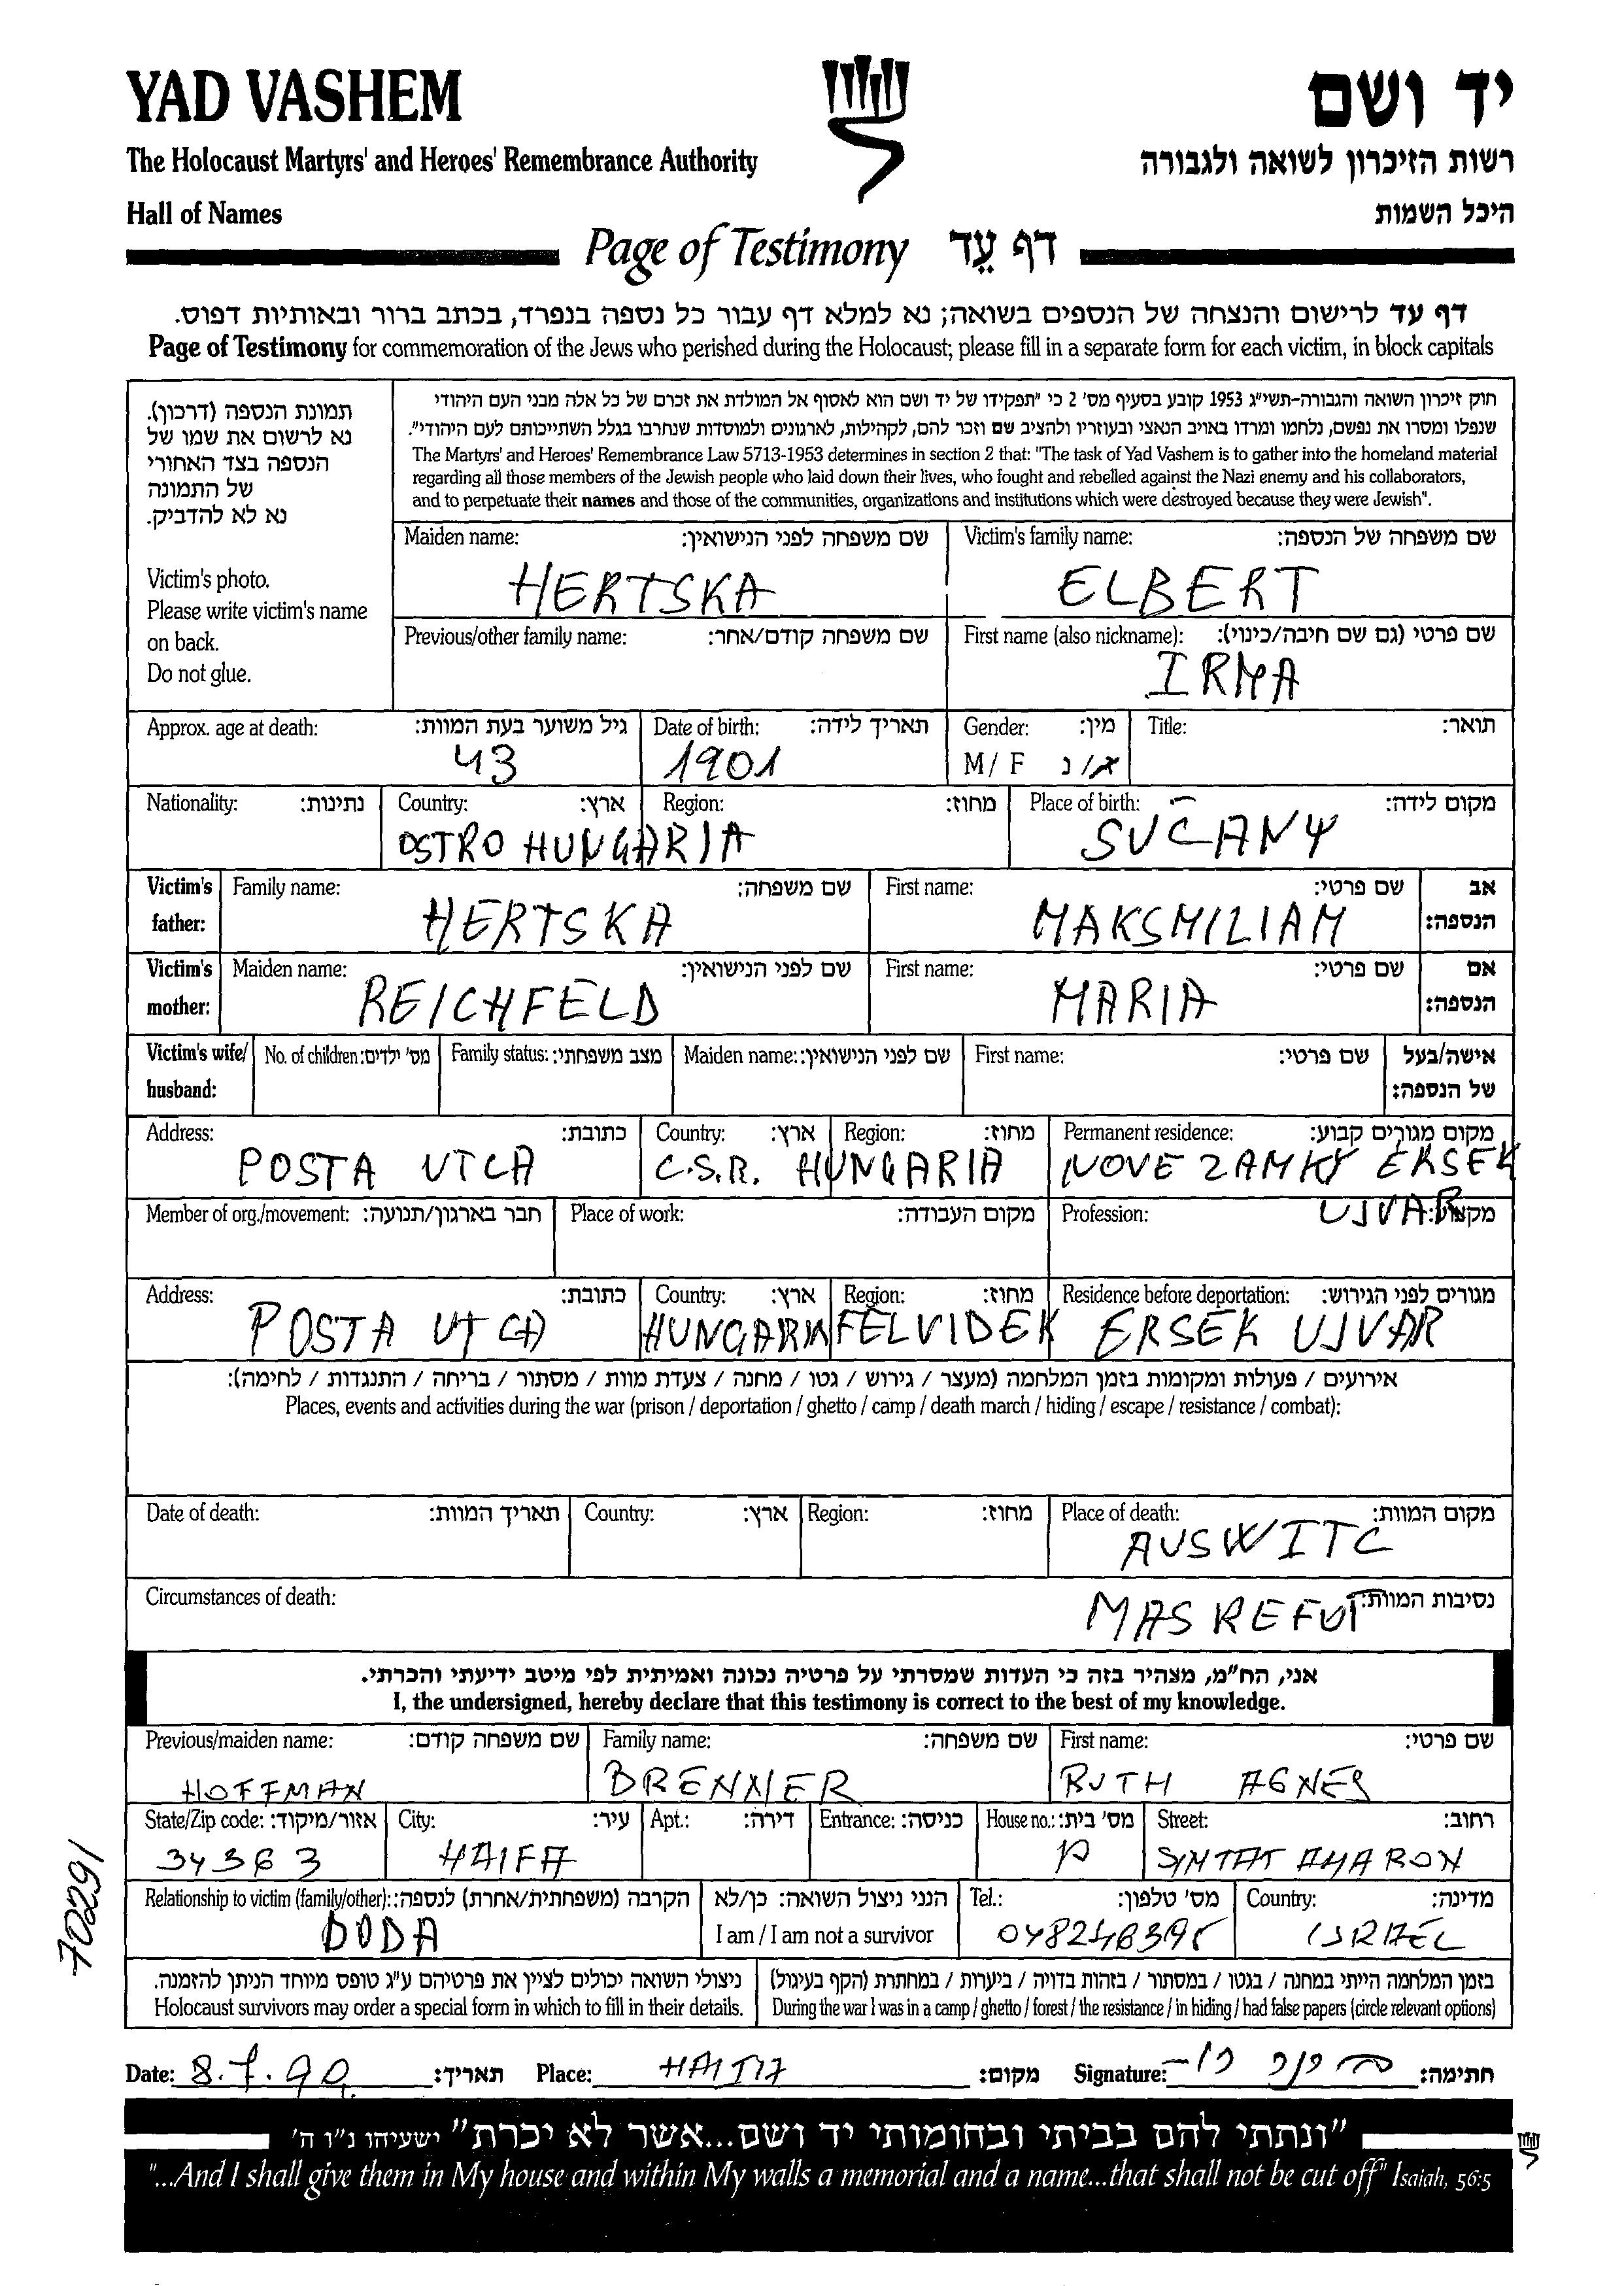 YAD VASHEM
יד ושם
The Holocaust Martyrs' and Heroes' Remembrance Authority
רשות הזיכרון לשואה ולגבורה
Hall of Names
היכל השמות
Page of Testimony דף עֵד
דף עד לרישום והנצחה של הנספים בשואה; נא למלא דף עבור כל נספה בנפרד, בכתב ברור ובאותיות דפוס.
Page of Testimony for commemoration of the Jews who perished during the Holocaust; please fill in a separate form for each victim, in block capitals
תמונת הנספה (דרכון).
נא לרשום את שמו של
הנספה בצד האחורי
של התמונה
נא לא להדביק.
Victim's photo.
Please write victim's name
on back.
Do not glue.
חוק זיכרון השואה והגבורה-תשי״ג 1953 קובע בסעיף מס' 2 כי "תפקידו של יד ושם הוא לאסוף אל המולדת את זכרם של כל אלה מבני העם היהודי
שנפלו ומסרו את נפשם, נלחמו ומרדו באויב הנאצי ובעוזריו ולהציב שם וזכר להם, לקהילות, לארגונים ולמוסדות שנחרבו בגלל השתייכותם לעם היהודי".
The Martyrs' and Heroes' Remembrance Law 5713-1953 determines in section 2 that: "The task of Yad Vashem is to gather into the homeland material
regarding all those members of the Jewish people who laid down their lives, who fought and rebelled against the Nazi enemy and his collaborators,
and to perpetuate their names and those of the communities, organizations and institutions which were destroyed because they were Jewish".
Maiden name: שם משפחה לפני הנישואין: Victim's family name: שם משפחה של הנספה:
HERTSKA ELBERT
Previous/other family name: שם משפחה קודם/אחר: First name (also nickname): שם פרטי (גם שם חיבה/כינוי):
IRMA
Approx. age at death: גיל משוער בעת המוות: Date of birth: תאריך לידה: Gender: מין: Title: תואר:
43 1901 M / F ז/נ
Nationality: נתינות: Country: ארץ: Region: מחוז: Place of birth: מקום לידה:
OSTRO HUNGARIA SUCANY
Victim's father: Family name: שם משפחה: First name: שם פרטי: אב הנספה:
HERTSKA MAKSMILIAM
Victim's mother: Maiden name: שם לפני הנישואין: First name: שם פרטי: אם הנספה:
REICHFELD MARIA
Victim's wife/ husband: No. of children: מס' ילדים: Family status: מצב משפחתי: Maiden name: שם לפני הנישואין: First name: שם פרטי: אישה/בעל של הנספה:
Address: כתובת: Country: ארץ: Region: מחוז: Permanent residence: מקום מגורים קבוע:
POSTA UTCA C.S.R. HUNGARIA NOVE ZAMKY ERSEK
UJVAR
Member of org./movement: חבר בארגון/תנועה: Place of work: מקום העבודה: Profession: מקצוע:
Address: כתובת: Country: ארץ: Region: מחוז: Residence before deportation: מגורים לפני הגירוש:
POSTA UTCA HUNGARIA FELVIDEK ERSEK UJVAR
אירועים / פעולות ומקומות בזמן המלחמה (מעצר / גירוש / גטו / מחנה / צעדת מוות / מסתור / בריחה / התנגדות / לחימה):
Places, events and activities during the war (prison / deportation / ghetto / camp / death march / hiding / escape / resistance / combat):
Date of death: תאריך המוות: Country: ארץ: Region: מחוז: Place of death: מקום המוות:
AUSWITC
Circumstances of death: נסיבות המוות:
MASREFOT
אני, הח"מ, מצהיר בזה כי העדות שמסרתי על פרטיה נכונה ואמיתית לפי מיטב ידיעתי והכרתי.
I, the undersigned, hereby declare that this testimony is correct to the best of my knowledge.
Previous/maiden name: שם משפחה קודם: Family name: שם משפחה: First name: שם פרטי:
HOFFMAN BRENNER RUTH AGNES
State/Zip code: אזור/מיקוד: City: עיר: Apt.: דירה: Entrance: כניסה: House no.: מס' בית: Street: רחוב:
34363 HAIFA SYMTAT AHARON
Relationship to victim (family/other): הקרבה (משפחתית/אחרת) לנספה: הנני ניצול השואה: כן/לא Tel.: מס' טלפון: Country: מדינה:
DODA I am / I am not a survivor ISRAEL
ניצולי השואה יכולים לציין את פרטיהם ע"ג טופס מיוחד הניתן להזמנה.
Holocaust survivors may order a special form in which to fill in their details.
בזמן המלחמה הייתי במחנה / בגטו / במסתור / בזהות בדויה / ביערות / במחתרת (הקף בעיגול)
During the war I was in a camp / ghetto / forest / the resistance / in hiding / had false papers (circle relevant options)
70291
Date: 8.7.99 תאריך: Place: מקום: Signature: חתימה:
"ונתתי להם בביתי ובחומותי יד ושם...אשר לא יכרת" ישעיהו נ"ו ה'
"...And I shall give them in My house and within My walls a memorial and a name...that shall not be cut off" Isaiah, 56:5